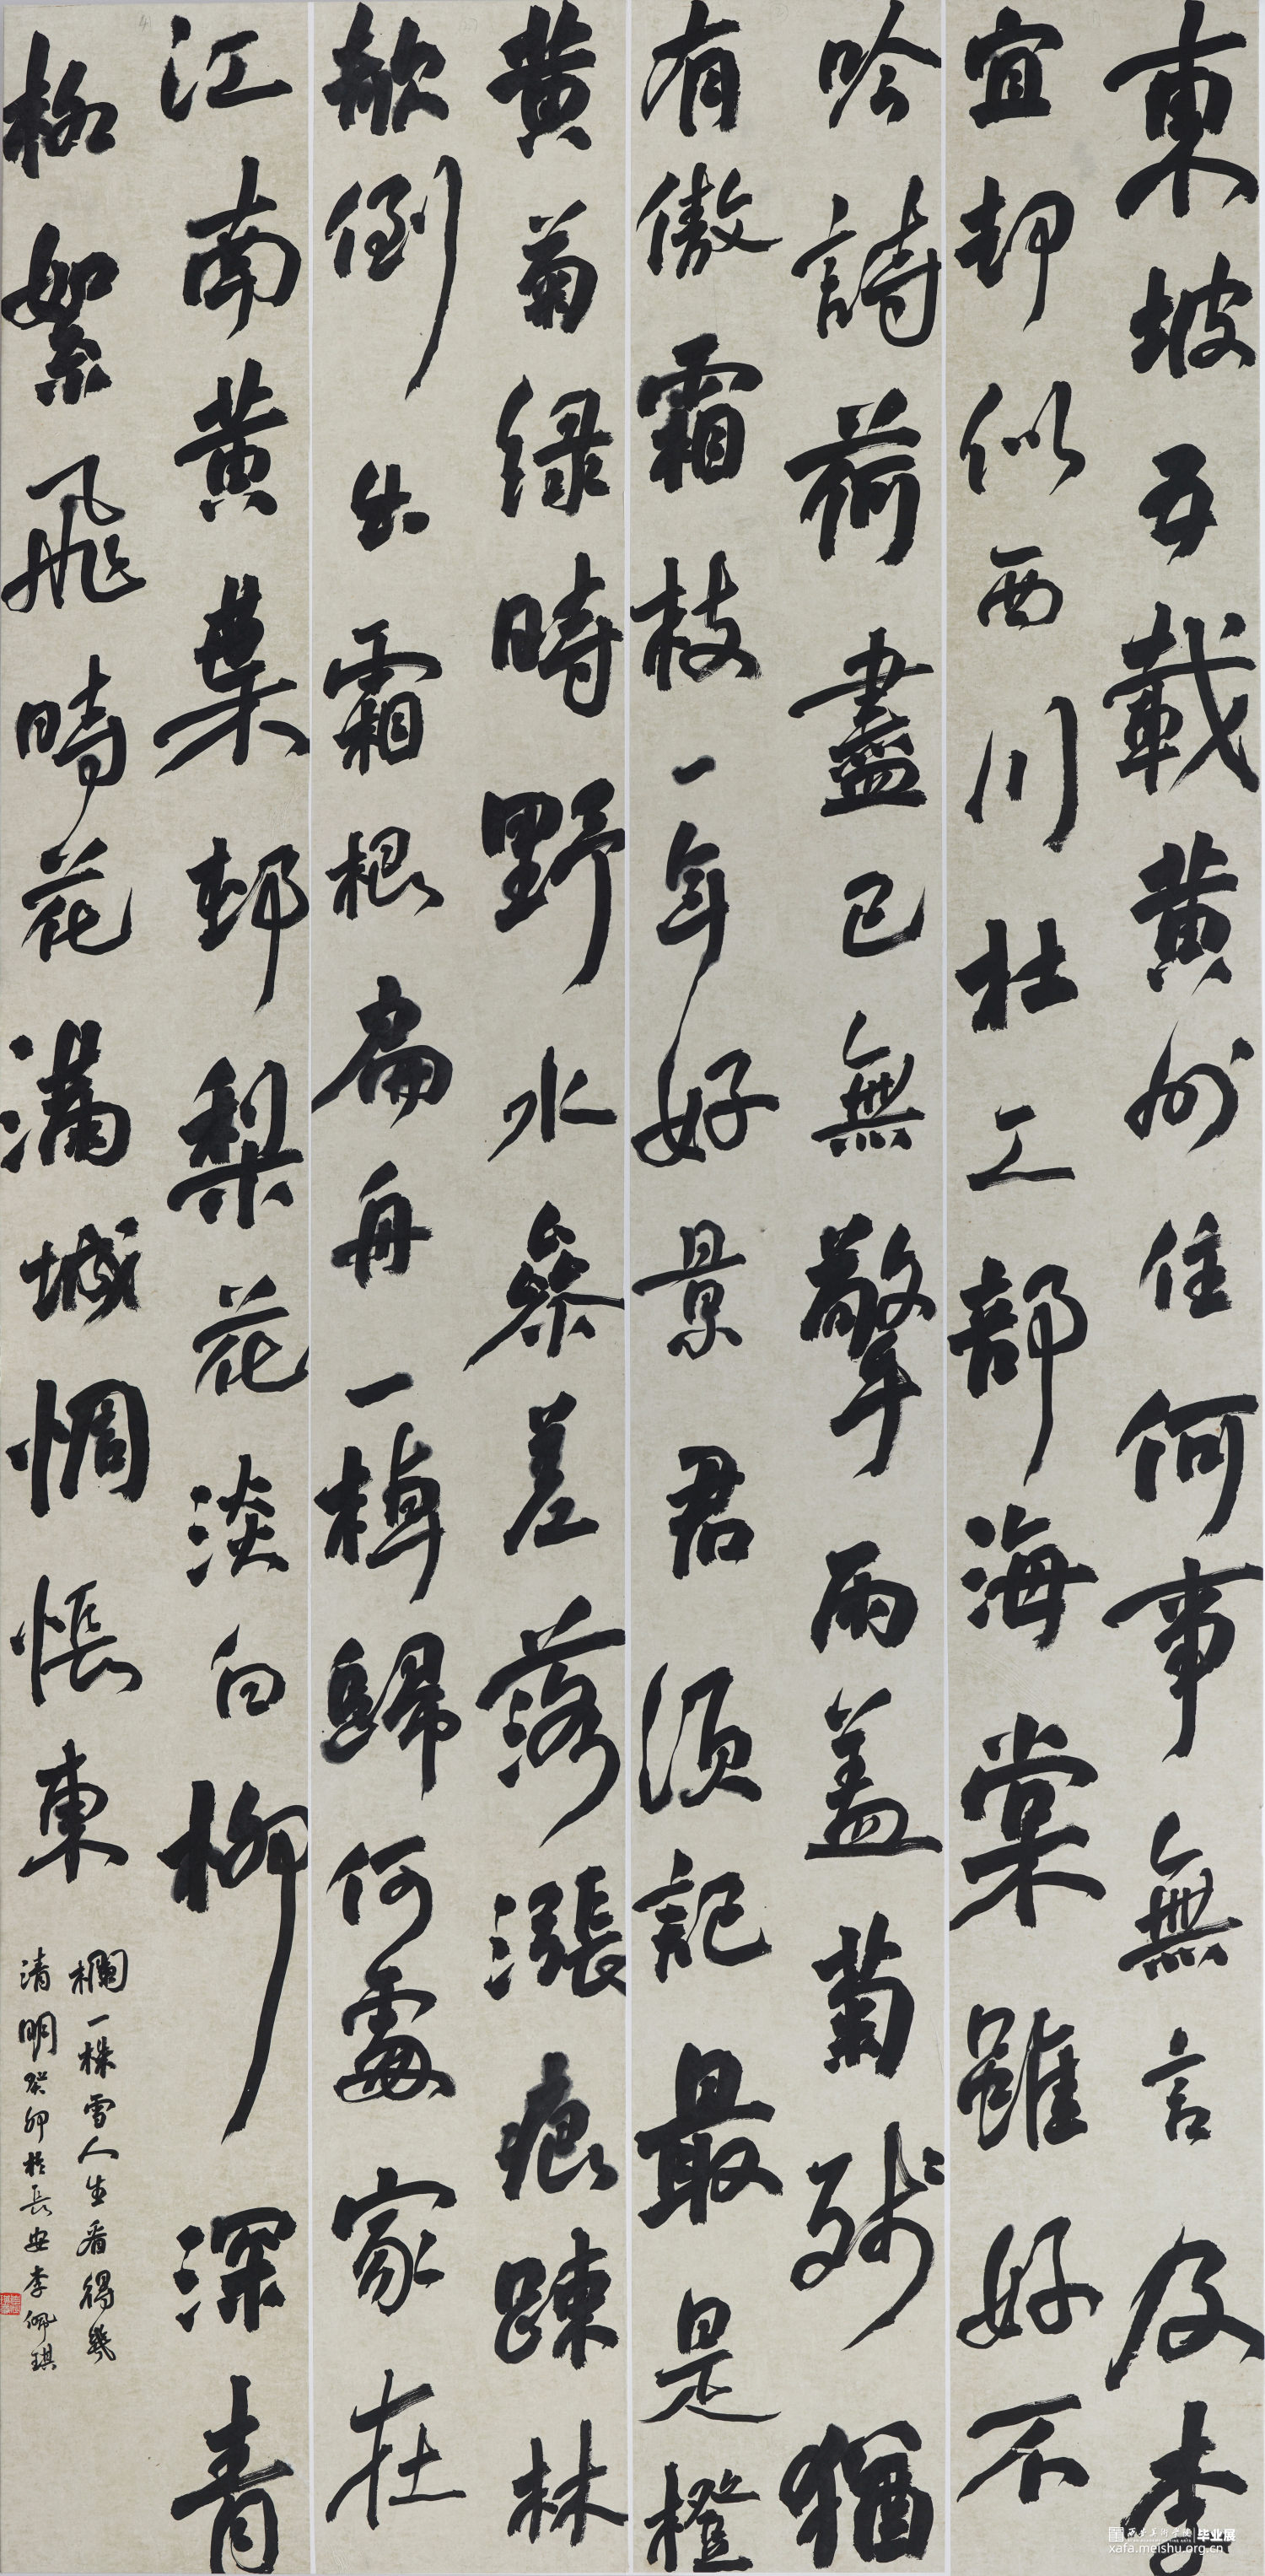 東坡五載黄州住何事無言及李
宜却似西川杜工部海棠雖好不
吟詩荷盡已無擎雨蓋菊殘猶
有傲霜枝一年好景君須記最是橙
黄菊绿時野水參差落漲痕疎林
欹倒出霜根扁舟一棹歸何處家在
江南黄葉邨梨花淡白柳深青
柳絮飛時花滿城惆悵東
欄一株雪人生看得幾
清明癸卯於長安李佩琪
西安美術學院 毕业展
xafa.meishu.org.cn